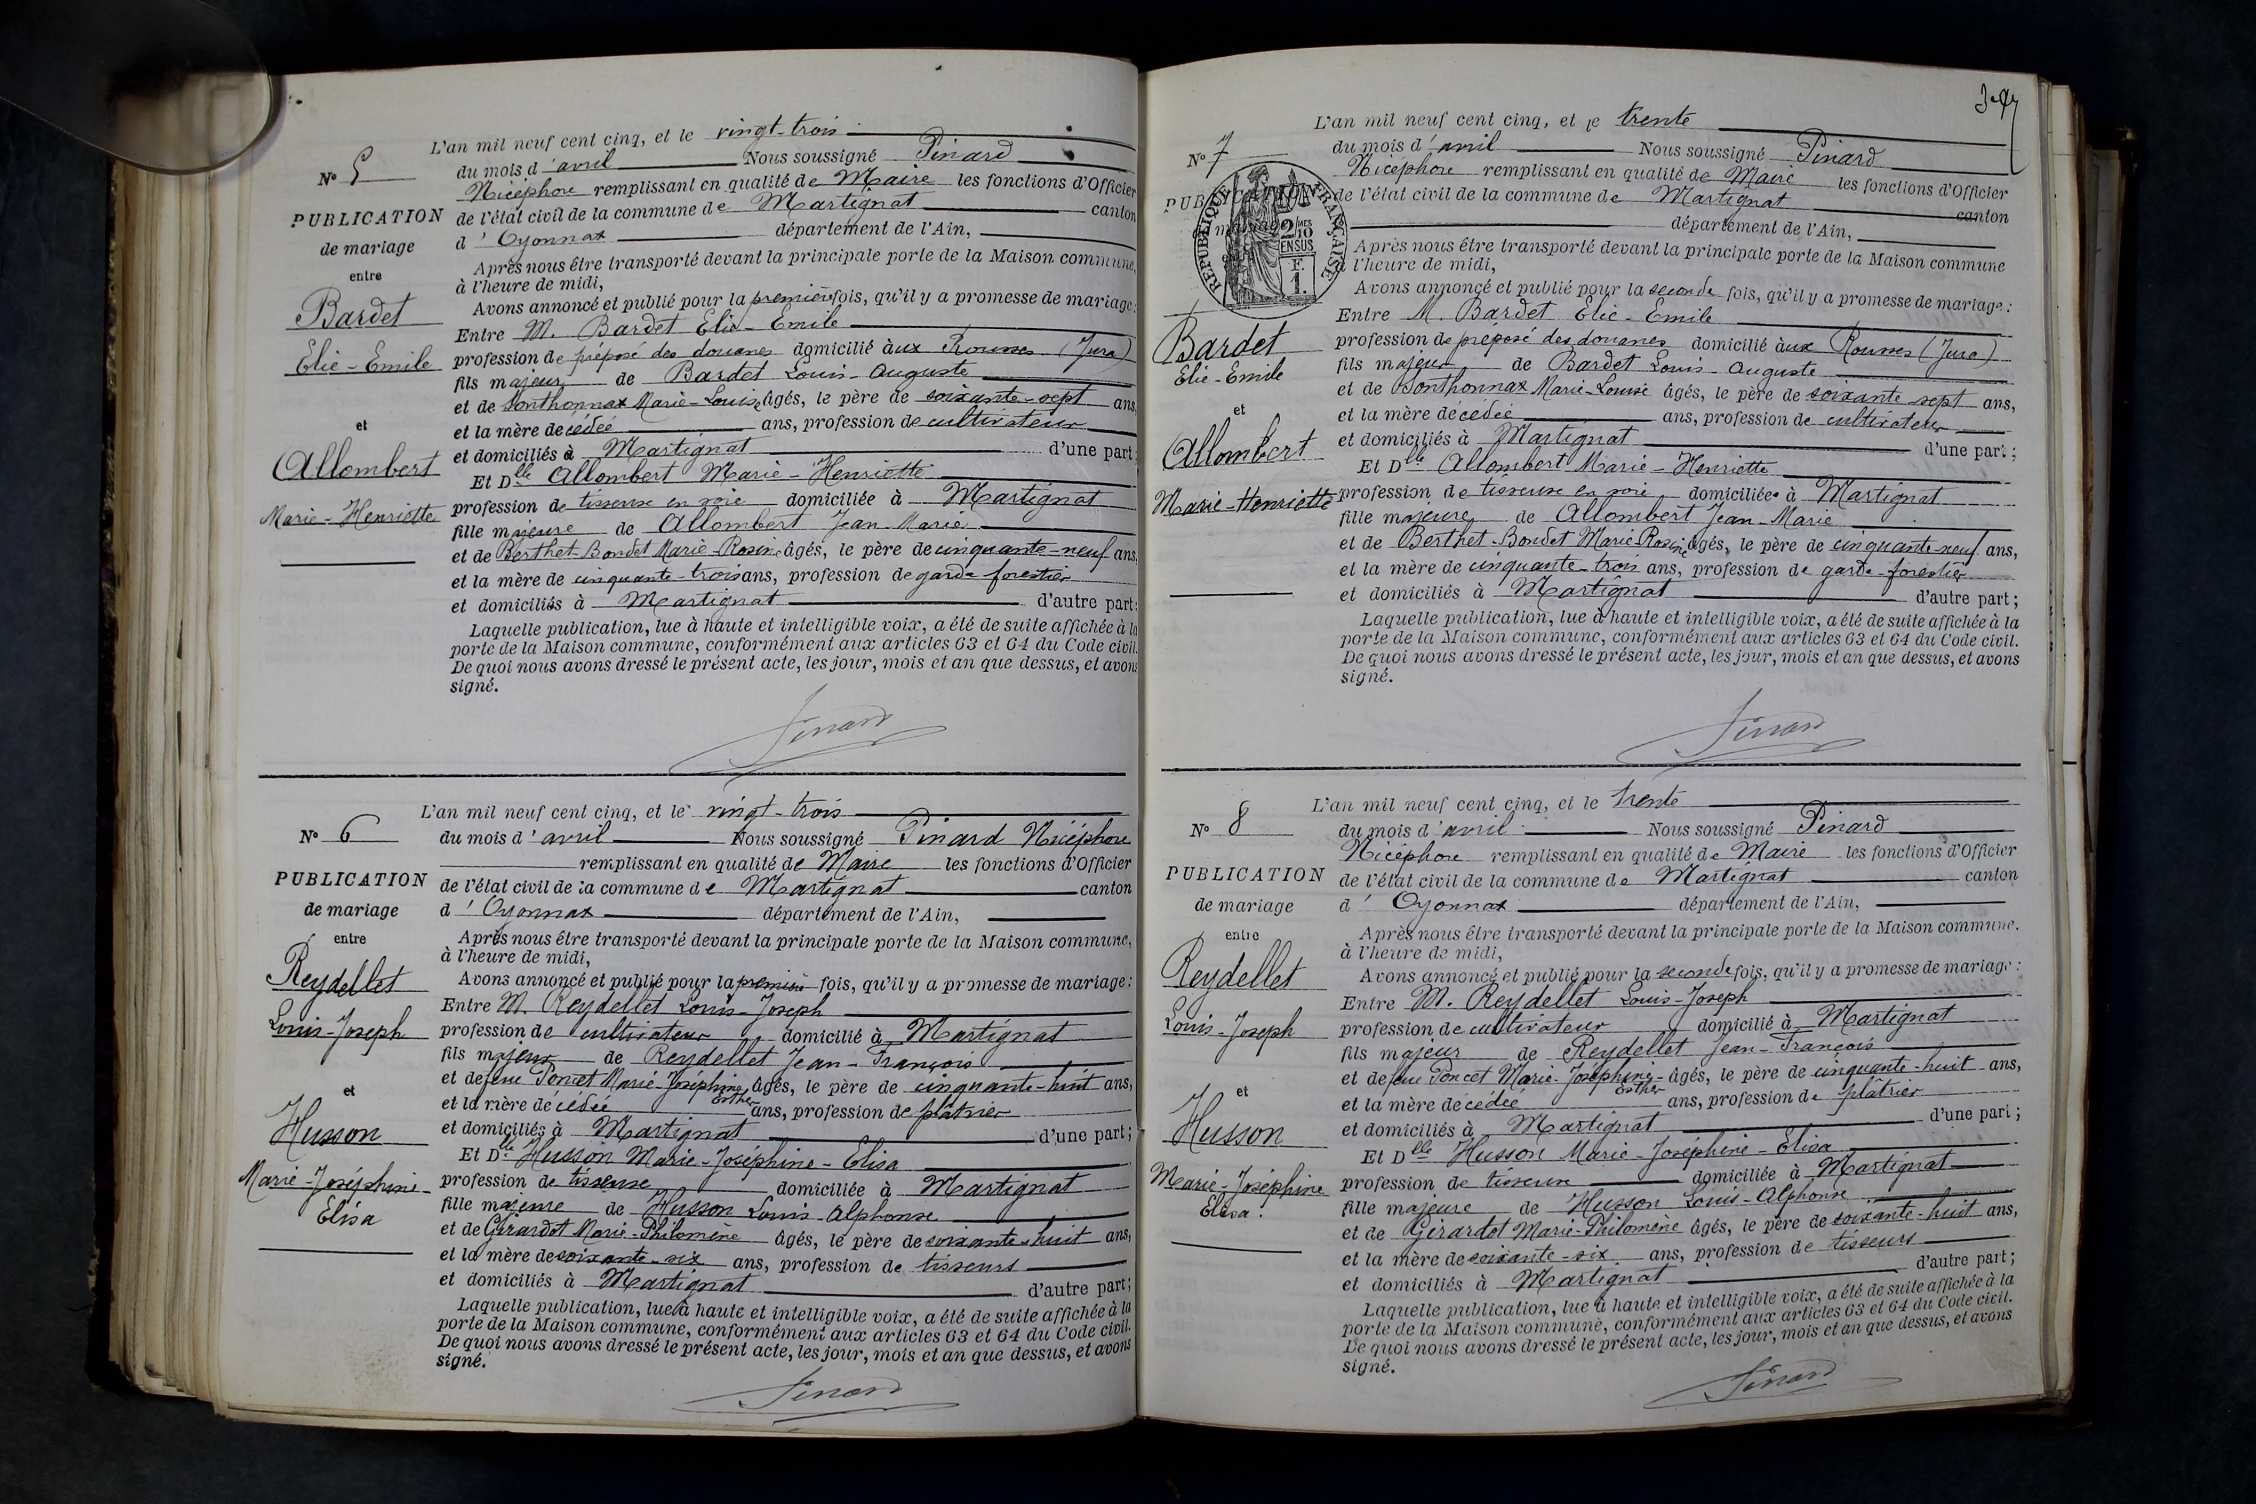 L'an mil neuf cent cinq, et le vingt-trois
N° 5
du mois d'avril Nous soussigné Pinard
Nicéphore remplissant en qualité de Maire les fonctions d'Officier
PUBLICATION
de l'état civil de la commune de Martignat canton
de mariage
d'Oyonnax département de l'Ain,
entre
Après nous être transporté devant la principale porte de la Maison commune,
à l'heure de midi,
Avons annoncé et publié pour la première fois, qu'il y a promesse de mariage:
Bardet
Entre M. Bardet Elie-Emile
Elie-Emile
profession de préposé des douanes domicilié aux Rousses (Jura)
fils majeur de Bardet Louis-Auguste
et de Sonthonnax Marie-Louise âgés, le père de soixante-sept ans,
et
et la mère décédée ans, profession de cultivateur
et domiciliés à Martignat d'une part;
Allombert
Et Dlle Allombert Marie-Henriette
Marie-Henriette
profession de tisseuse en soie domiciliée à Martignat
fille majeure de Allombert Jean-Marie
et de Berthet-Bondet Marie-Rosine âgés, le père de cinquante-neuf ans,
et la mère de cinquante-trois ans, profession de garde forestier
et domiciliés à Martignat d'autre part;
Laquelle publication, lue à haute et intelligible voix, a été de suite affichée à la
porte de la Maison commune, conformément aux articles 63 et 64 du Code civil.
De quoi nous avons dressé le présent acte, les jour, mois et an que dessus, et avons
signé.
Pinard
L'an mil neuf cent cinq, et le vingt-trois
N° 6
du mois d'avril Nous soussigné Pinard Nicéphore
remplissant en qualité de Maire les fonctions d'Officier
PUBLICATION
de l'état civil de la commune de Martignat canton
de mariage
d'Oyonnax département de l'Ain,
entre
Après nous être transporté devant la principale porte de la Maison commune,
à l'heure de midi,
Avons annoncé et publié pour la première fois, qu'il y a promesse de mariage:
Reydellet
Entre M. Reydellet Louis-Joseph
Louis-Joseph
profession de cultivateur domicilié à Martignat
fils majeur de Reydellet Jean-François
et de feue Poncet Marie-Joséphine âgés, le père de cinquante-huit ans,
et
Esther
et la mère décédée ans, profession de plâtrier
Husson
et domiciliés à Martignat d'une part;
Et Dlle Husson Marie-Joséphine-Elisa
Marie-Joséphine-
Elisa
profession de tisseuse domiciliée à Martignat
fille majeure de Husson Louis-Alphonse
et de Girardot Marie-Philomène âgés, le père de soixante-huit ans,
et la mère de soixante-six ans, profession de tisseurs
et domiciliés à Martignat d'autre part;
Laquelle publication, lue à haute et intelligible voix, a été de suite affichée à la
porte de la Maison commune, conformément aux articles 63 et 64 du Code civil.
De quoi nous avons dressé le présent acte, les jour, mois et an que dessus, et avons
signé.
Pinard
L'an mil neuf cent cinq, et le trente
N° 7
du mois d'avril Nous soussigné Pinard
Nicéphore remplissant en qualité de Maire les fonctions d'Officier
PUBLICATION
RÉPUBLIQUE FRANÇAISE
2/10 MES
EN SUS
F.
1.
de l'état civil de la commune de Martignat canton
mariage
département de l'Ain,
Après nous être transporté devant la principale porte de la Maison commune
à l'heure de midi,
Avons annoncé et publié pour la seconde fois, qu'il y a promesse de mariage:
Entre M. Bardet Elie-Emile
Bardet
Elie-Emile
profession de préposé des douanes domicilié aux Rousses (Jura)
fils majeur de Bardet Louis-Auguste
et de Sonthonnax Marie-Louise âgés, le père de soixante-sept ans,
et
et la mère décédée ans, profession de cultivateur
et domiciliés à Martignat d'une part;
Allombert
Et Dlle Allombert Marie-Henriette
Marie-Henriette
profession de tisseuse en soie domiciliée à Martignat
fille majeure de Allombert Jean-Marie
et de Berthet-Bondet Marie-Rosine âgés, le père de cinquante-neuf ans,
et la mère de cinquante-trois ans, profession de garde-forestier
et domiciliés à Martignat d'autre part;
Laquelle publication, lue à haute et intelligible voix, a été de suite affichée à la
porte de la Maison commune, conformément aux articles 63 et 64 du Code civil.
De quoi nous avons dressé le présent acte, les jour, mois et an que dessus, et avons
signé.
Pinard
L'an mil neuf cent cinq, et le trente
N° 8
du mois d'avril Nous soussigné Pinard
Nicéphore remplissant en qualité de Maire les fonctions d'Officier
PUBLICATION
de l'état civil de la commune de Martignat canton
de mariage
d'Oyonnax département de l'Ain,
entre
Après nous être transporté devant la principale porte de la Maison commune.
à l'heure de midi,
Avons annoncé et publié pour la seconde fois, qu'il y a promesse de mariage:
Reydellet
Entre M. Reydellet Louis-Joseph
Louis-Joseph
profession de cultivateur domicilié à Martignat
fils majeur de Reydellet Jean-François
et de feue Poncet Marie-Joséphine- âgés, le père de cinquante-huit ans,
et
Esther
et la mère décédée ans, profession de plâtrier
Husson
et domiciliés à Martignat d'une part;
Et Dlle Husson Marie-Joséphine-Elisa
Marie-Joséphine
Elisa.
profession de tisseuse domiciliée à Martignat
fille majeure de Husson Louis-Alphonse
et de Girardot Marie-Philomène âgés, le père de soixante-huit ans,
et la mère de soixante-six ans, profession de tisseurs
et domiciliés à Martignat d'autre part;
Laquelle publication, lue à haute et intelligible voix, a été de suite affichée à la
porte de la Maison commune, conformément aux articles 63 et 64 du Code civil.
De quoi nous avons dressé le présent acte, les jour, mois et an que dessus, et avons
signé.
Pinard